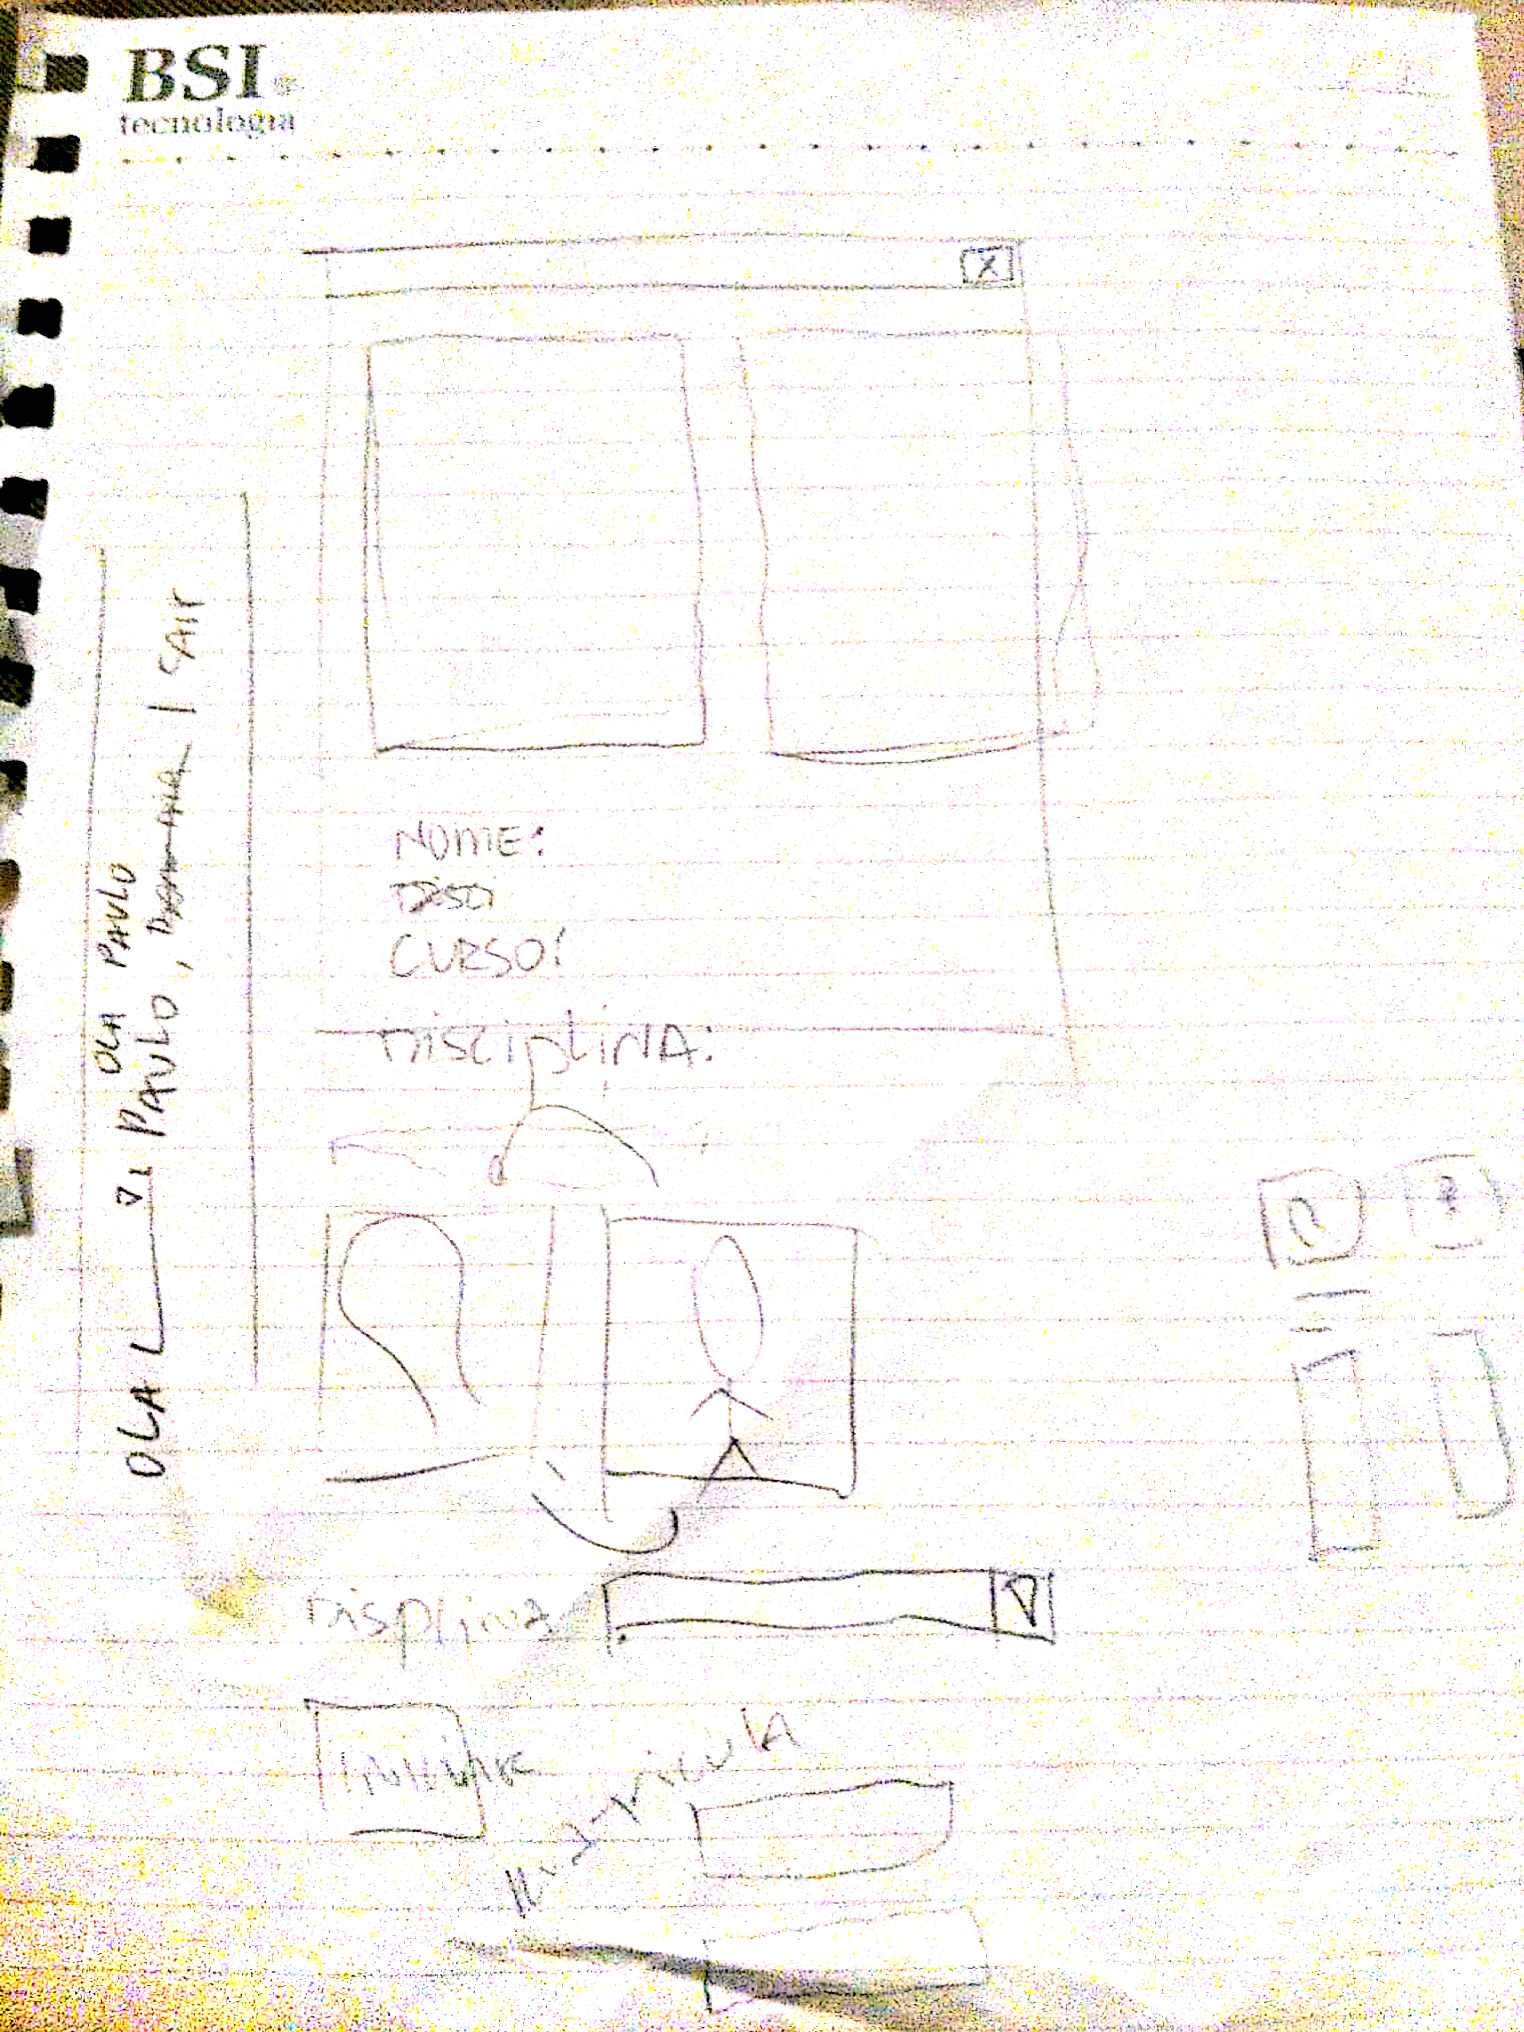 BSI
tecnologia
X
NOME:
CURSO:
DISCIPLINA:
OLA PAULO
OLA
PAULO, | SAIr
Displina
Matricula